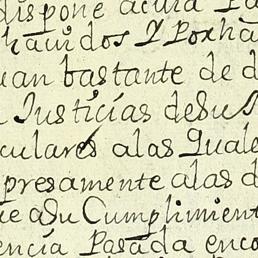 dispone acuia Pa
hauidos Y Porha
uan bastante de d
Justicias desu
culares alas Quale
presamente alas d
ue asu Cumplimient
encia Pasada enco